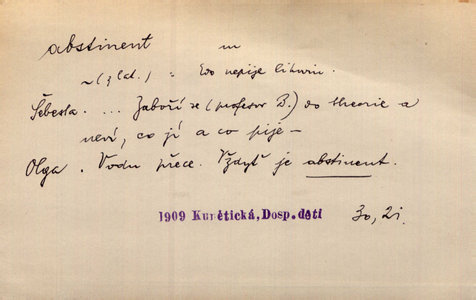 abstinent m
~ (z lat.) = kdo nepije lihovin.
Šebesta. ... Zaboří se (profesor B.) do theorie a
neví, co jí a co pije –
Olga. Vodu přece. Vždyť je abstinent.
1909 Kunětická, Dosp. děti 30, 2i.